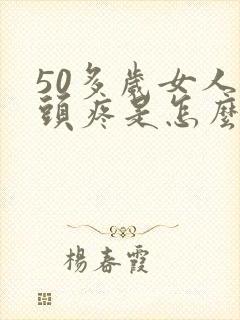 50多歲女人
頭疼是怎麼
楊春霞